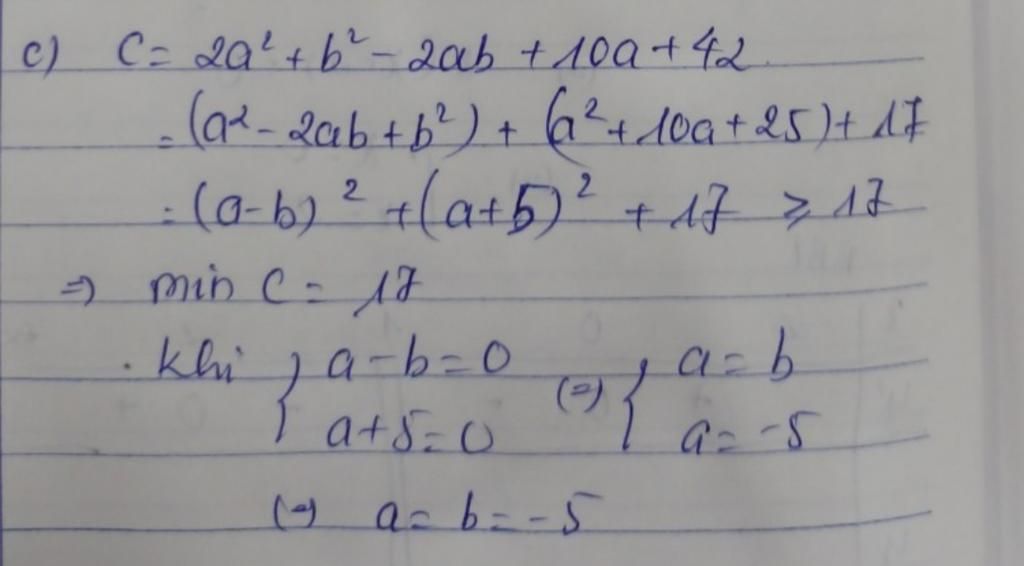 c) C = 2a² + b² - 2ab + 10a + 42
= (a² - 2ab + b²) + (a² + 10a + 25) + 17
= (a-b)² + (a+5)² + 17 ⩾ 17
⇒ min C = 17
. khi { a - b = 0 (=) { a = b
a + 5 = 0 a = -5
(=) a = b = -5